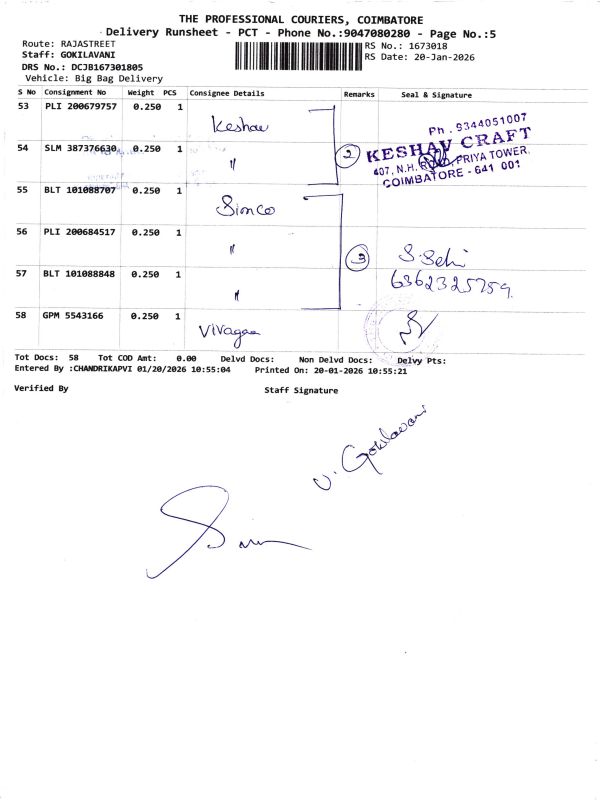 THE PROFESSIONAL COURIERS, COIMBATORE
Delivery Runsheet - PCT - Phone No.:9047080280 - Page No.:5
Route: RAJASTREET
Staff: GOKILAVANI
DRS No.: DCJB167301805
Vehicle: Big Bag Delivery
RS No.: 1673018
RS Date: 20-Jan-2026
S No Consignment No Weight PCS Consignee Details Remarks Seal & Signature
53 PLI 200679757 0.250 1 Keshav
54 SLM 387376630 0.250 1 " 2
Ph. 9344051007
KESHAV CRAFT
407, N.H. ROAD, PRIYA TOWER,
COIMBATORE - 641 001
55 BLT 101088707 0.250 1 Simco
56 PLI 200684517 0.250 1 " 3 S.Selvi
57 BLT 101088848 0.250 1 " 6362325759
58 GPM 5543166 0.250 1
Tot Docs: 58 Tot COD Amt: 0.00 Delvd Docs: Non Delvd Docs: Delvy Pts:
Entered By :CHANDRIKAPVI 01/20/2026 10:55:04 Printed On: 20-01-2026 10:55:21
Verified By Staff Signature
V. Gokilavani